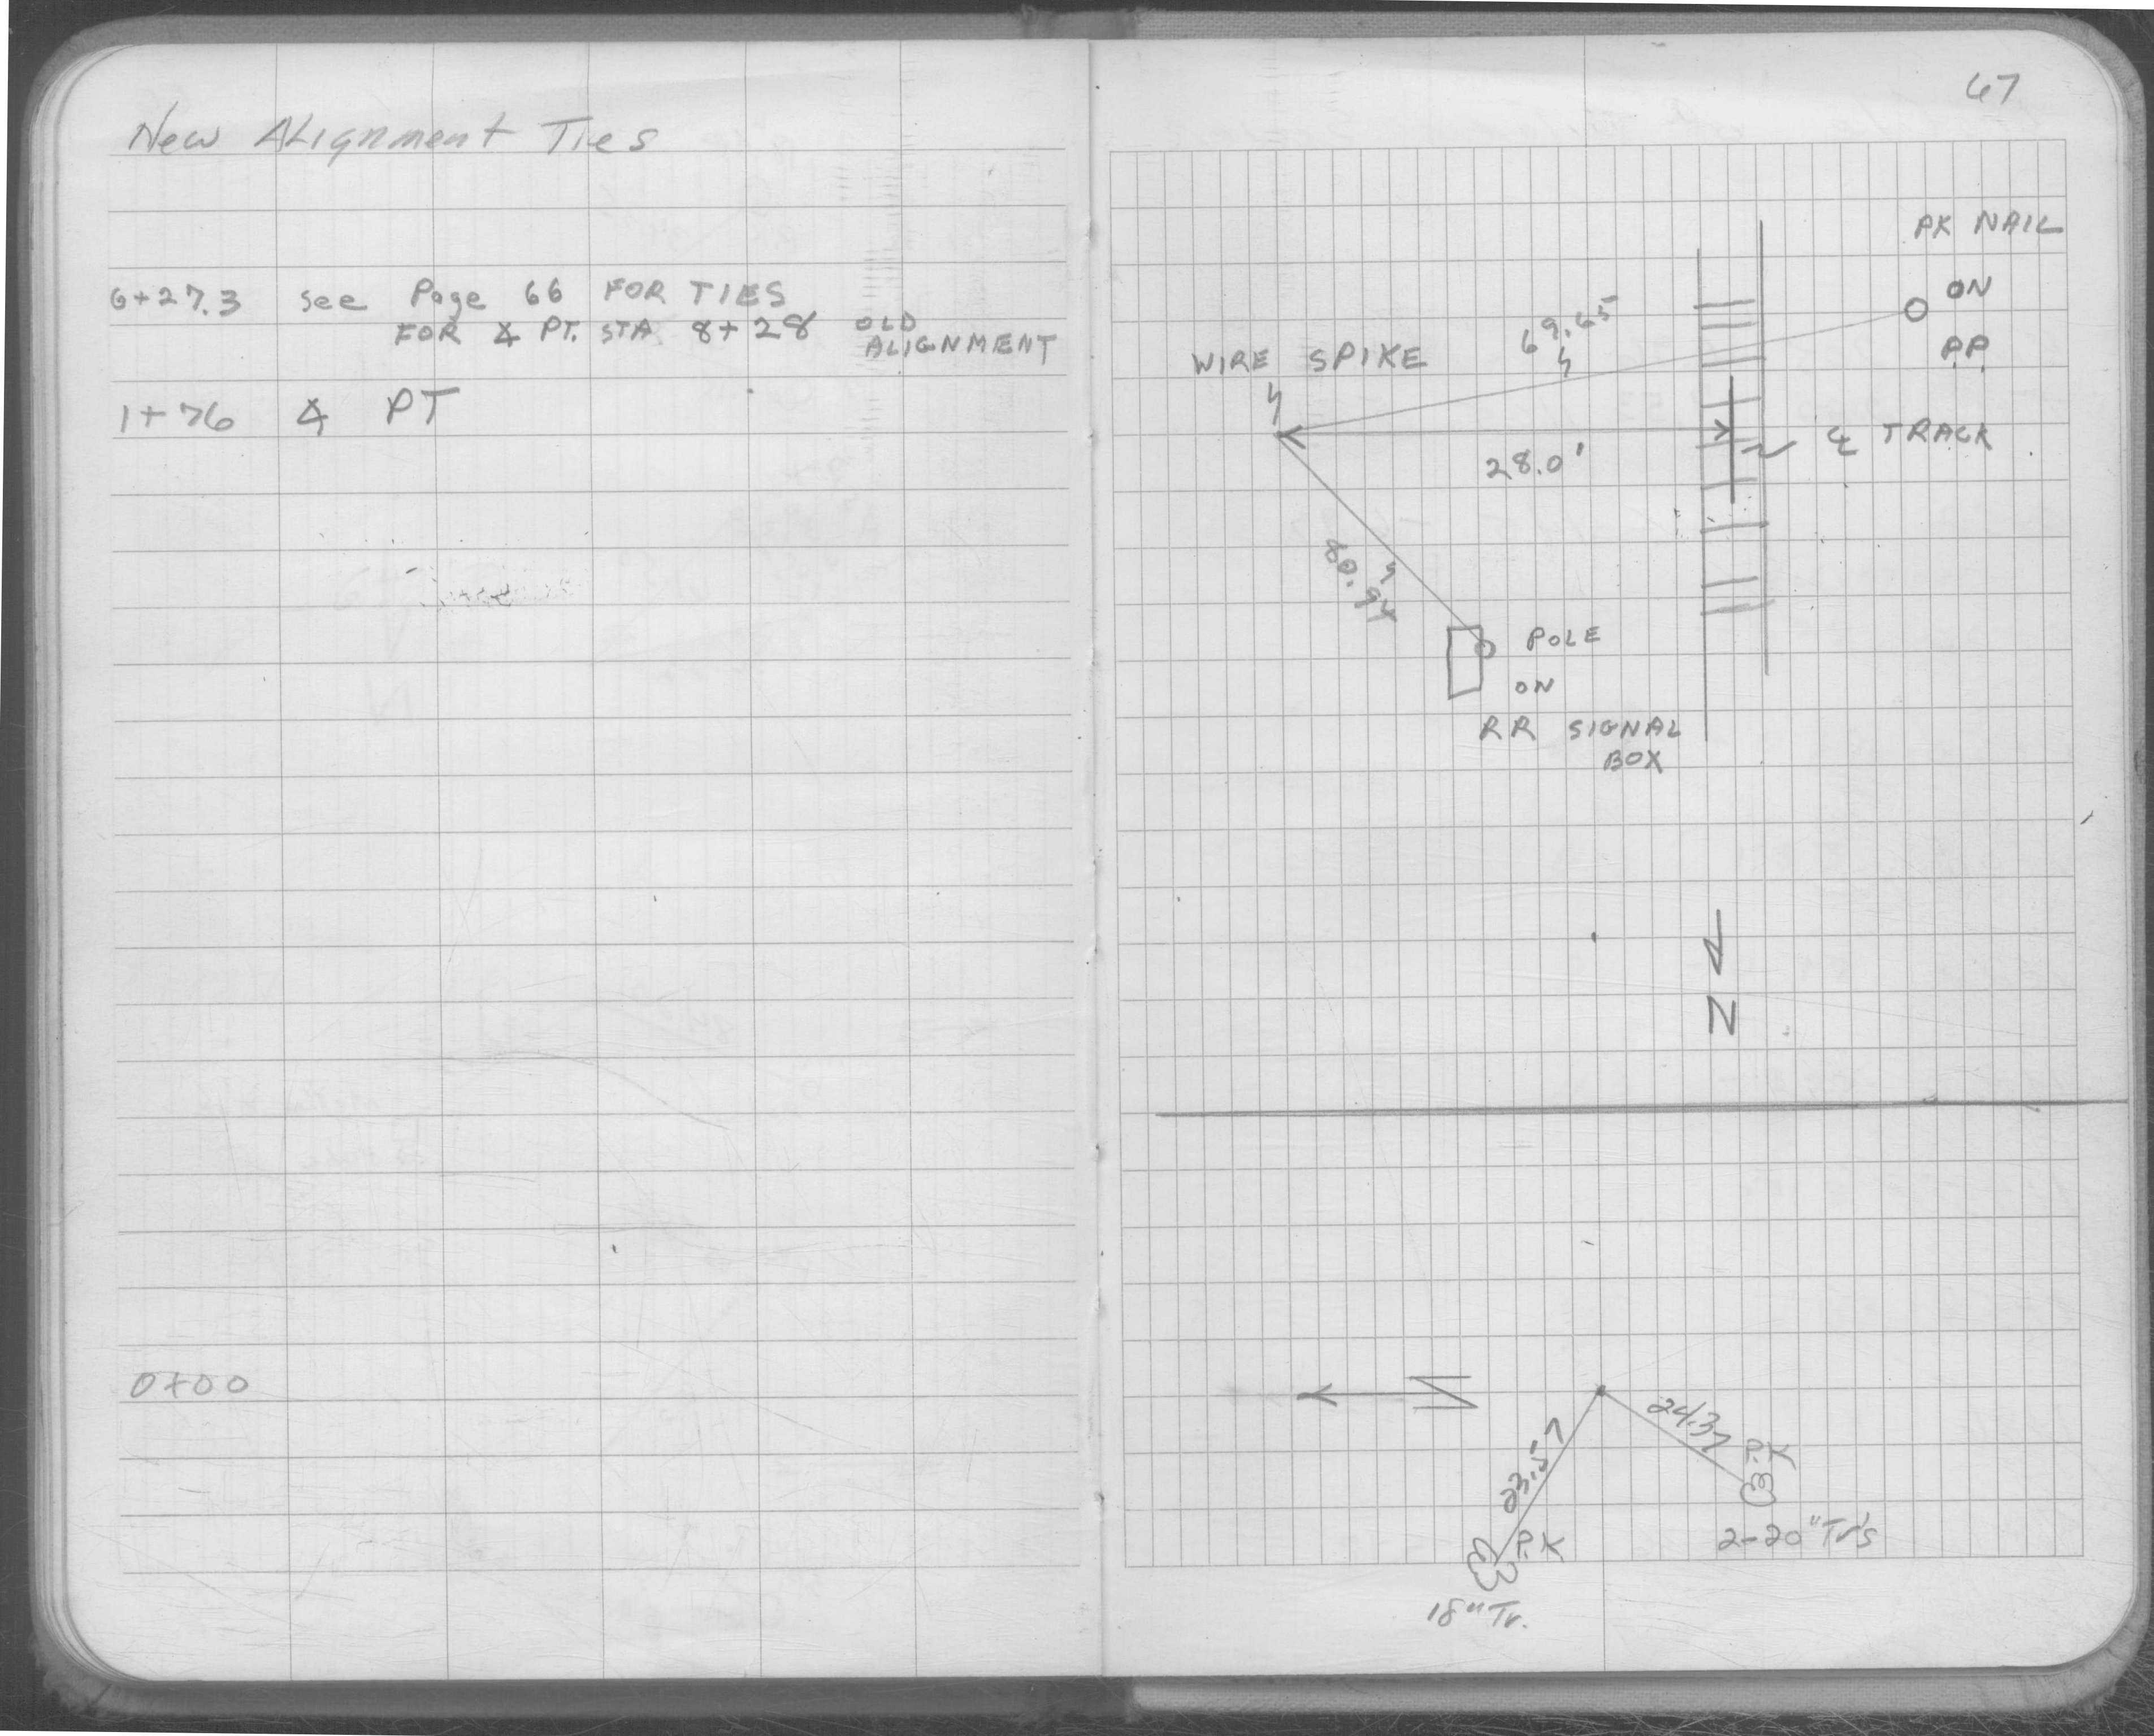 New Alignment Ties
6+27.3 See Page 66 FOR TIES
FOR ∡ PT. STA. 8+28 OLD ALIGNMENT
1+76 ∡ PT
0+00
67
PK NAIL
ON
P.P.
69.65
WIRE SPIKE
28.0'
℄ TRACK
POLE
ON
RR SIGNAL
BOX
N
N
24.37
P.K
23.57
P.K
2-20" Tr's
18" Tr.